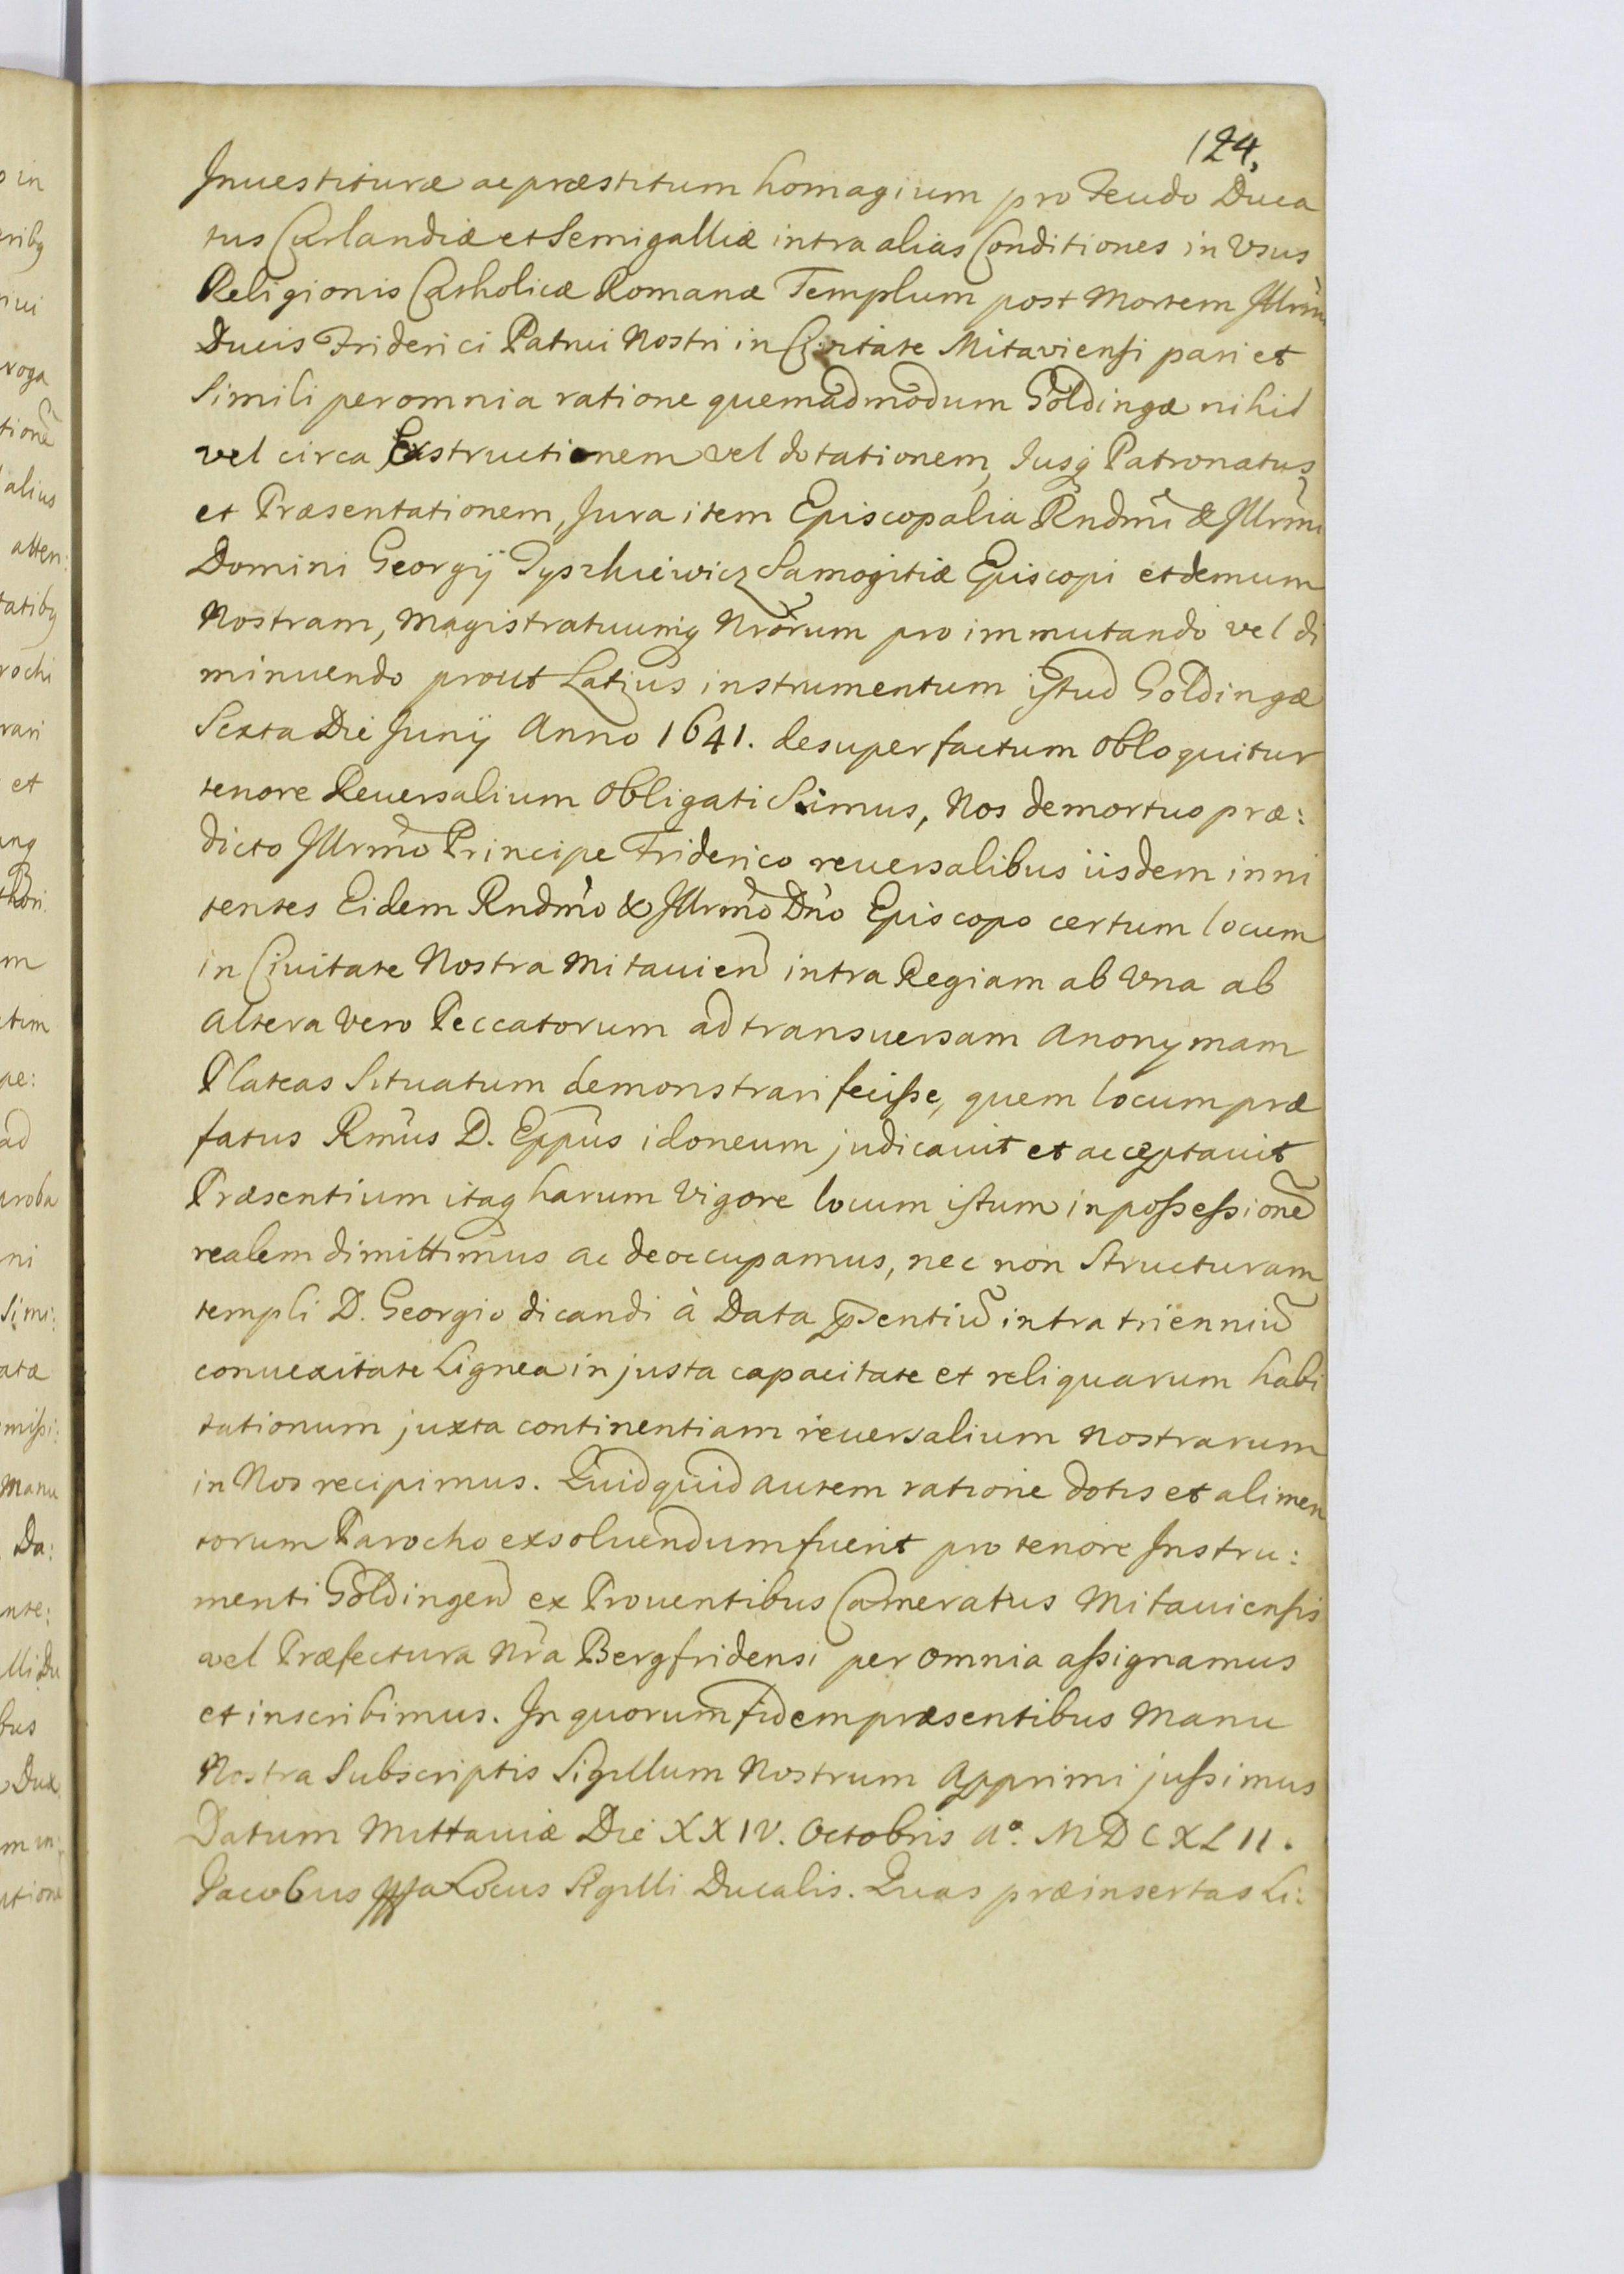 124.
Inuestituræ ac præstitum homagium pro Feudo Duca
tus Curlandiæ et Semigalliæ intra alias Conditiones in Usus
Religionis Catholicæ Romanæ Templum post Mortem Illrmi
Ducis Friderici Patrui Nostri in Civitate Mitaviensi pari et
Simili per omnia ratione quemadmodum Goldingæ nihil
vel circa Exstructionem vel dotationem, Jusq Patronatus
et Præsentationem, Jura item Episcopalia Rndmi & Illrmi
Domini Georgÿ Tyszkiewicz Samogitiæ Episcopi et demum
Nostram, Magistratuumq Nrorum pro immutando vel di
minuendo prout Latius instrumentum istud Goldingæ
Sexta Die Junÿ Anno 1641. desuper factum obloquitur
tenore Reuersalium Obligati Simus, Nos demortuo præ:
dicto Illrmo Principe Friderico reuersalibus iisdem inni
tentes Eidem Rndmo & Illrmo Dno Episcopo certum locum
in Ciuitate Nostra Mitauien intra Regiam ab Una ab
Altera Vero Peccatorum ad transuersam Anonymam
Plateas Situatum demonstrari fecisse, quem locum præ
fatus Rmus D. Eppus idoneum judicauit et acceptauit
Præsentium itaq harum Vigore locum istum in possessione
realem dimittimus ac deoccupamus, nec non Structuram
templi D. Georgio dicandi à Data pñsentiũ intra trienniũ
conuexitate Lignea in justa capacitate et reliquarum habi
tationum juxta continentiam reuersalium Nostrarum
in Nos recipimus. Quidquid autem ratione dotis et alimen
torum Parocho exsoluendum fuerit pro tenore Instru:
menti Goldingen ex Prouentibus Cameratus Mitauiensis
vel Præfectura Nra Bergfridensi per Omnia assignamus
et inscribimus. In quorum fidem præsentibus Manu
Nostra Subscriptis Sigillum Nostrum Apprimi jussimus
Datum Mittauiæ Die XXIV. Octobris Aº. MDCXLII.
Jacobus Locus Sigilli Ducalis. Quas præinsertas Li: